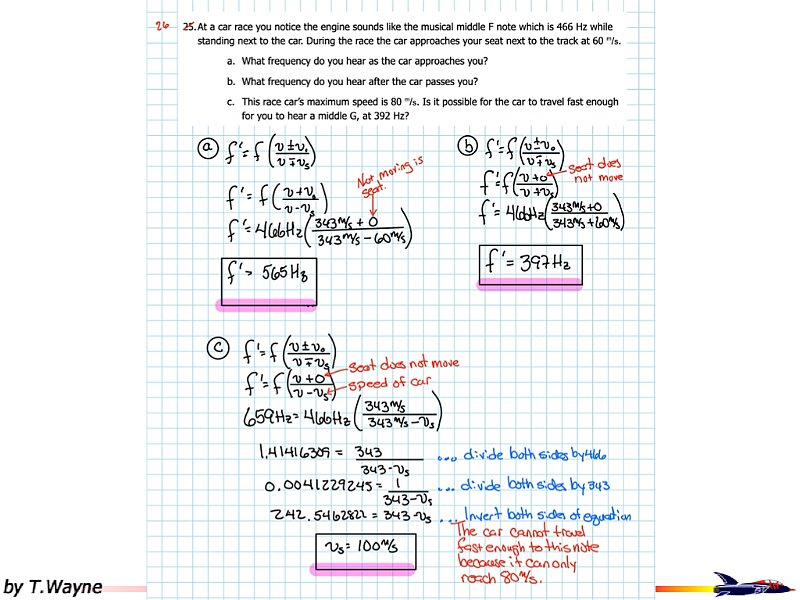 26 25. At a car race you notice the engine sounds like the musical middle F note which is 466 Hz while
standing next to the car. During the race the car approaches your seat next to the track at 60 m/s.
a. What frequency do you hear as the car approaches you?
b. What frequency do you hear after the car passes you?
c. This race car's maximum speed is 80 m/s. Is it possible for the car to travel fast enough
for you to hear a middle G, at 392 Hz?
a f' = f (v ± v₀ / v ∓ vₛ)
Not moving is
seat.
f' = f (v + v₀ / v - vₛ)
f' = 466Hz (343 m/s + 0 / 343 m/s - 60 m/s)
f' = 565 Hz
b f' = f (v ± v₀ / v ∓ vₛ)
seat does
not move
f' = f (v + 0 / v + vₛ)
f' = 466Hz (343 m/s + 0 / 343 m/s + 60 m/s)
f' = 397 Hz
c f' = f (v ± v₀ / v ∓ vₛ)
seat does not move
f' = f (v + 0 / v - vₛ)
speed of car
659Hz = 466Hz (343 m/s / 343 m/s - vₛ)
1.41416309 = 343 / 343 - vₛ ... divide both sides by 466
0.0041229245 = 1 / 343 - vₛ ... divide both sides by 343
242.5462822 = 343 - vₛ ... Invert both sides of equation
vₛ = 100 m/s
The car cannot travel
fast enough to this note
because it can only
reach 80 m/s.
by T.Wayne